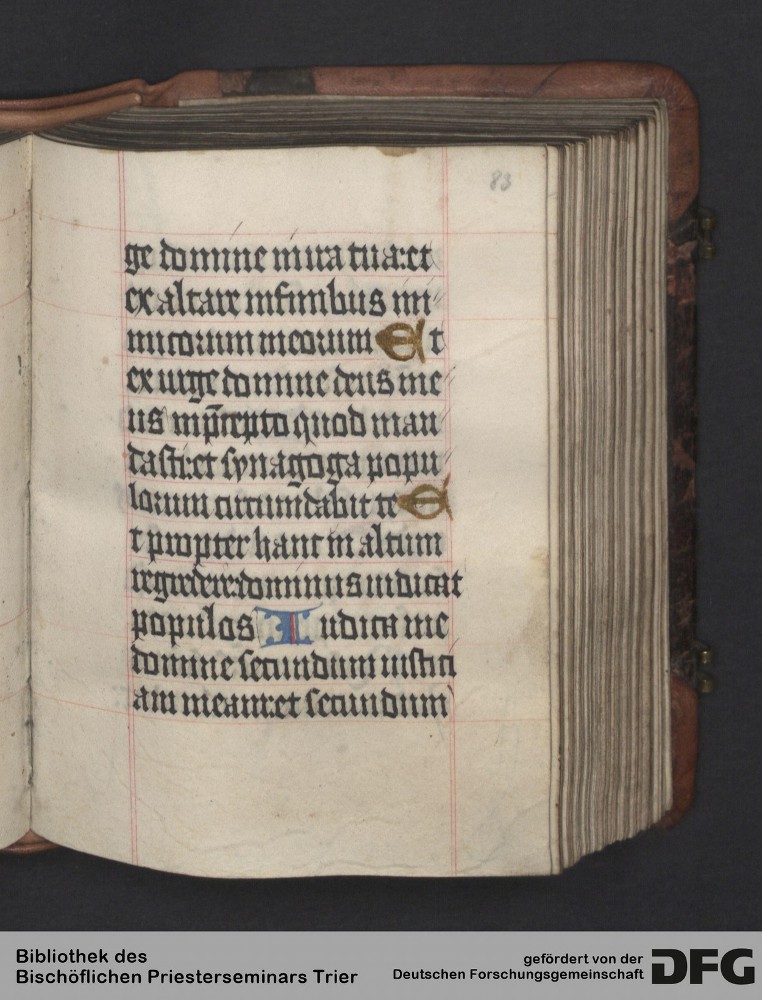 83
ge domine in ira tua: et
exaltare in finibus ini
micorum meorum Et
exurge domine deus me
us in p̄cepto quod man
dasti: et synagoga popu
lorum circumdabit te E
t propter hanc in altum
regredere: dominus iudicat
populos Iudica me
domine secundum iustici
am meam: et secundum
Bibliothek des
Bischöflichen Priesterseminars Trier
gefördert von der
Deutschen Forschungsgemeinschaft
DFG